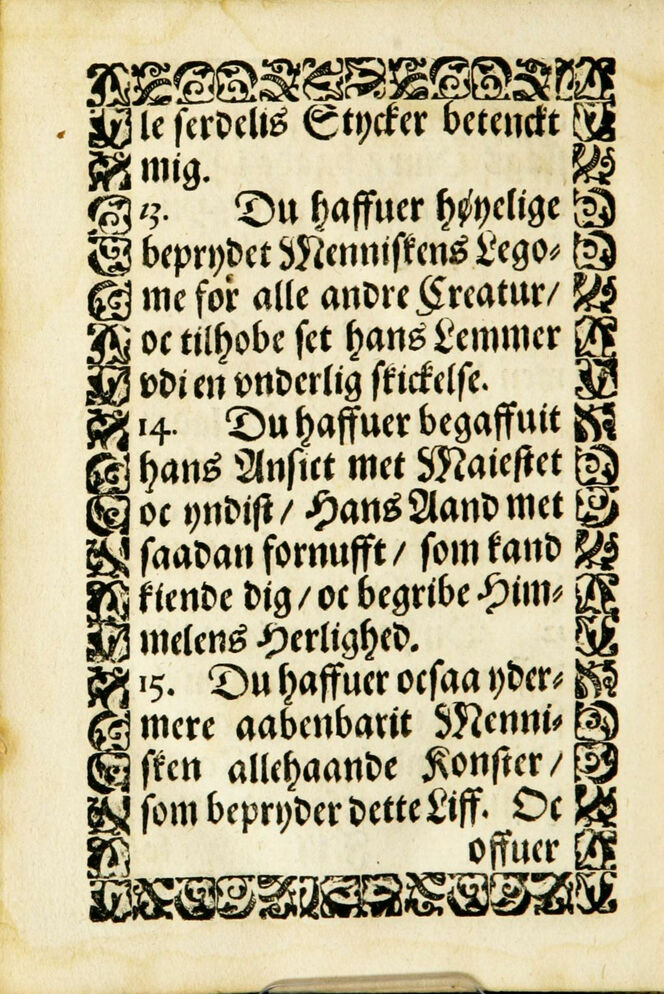 le serdelis Stycker betenckt
mig.
13. Du haffuer høyelige
beprydet Menniskens Lego⸗
me for alle andre Creatur/
oc tilhobe set hans Lemmer
vdi en vnderlig skickelse.
14. Du haffuer begaffuit
hans Ansict met Maiestet
oc yndist / Hans Aand met
saadan fornufft / som kand
kiende dig / oc begribe Him⸗
melens Herlighed.
15. Du haffuer ocsaa yder⸗
mere aabenbarit Menni⸗
sken allehaande Konster /
som bepryder dette Liff. Oc
offuer